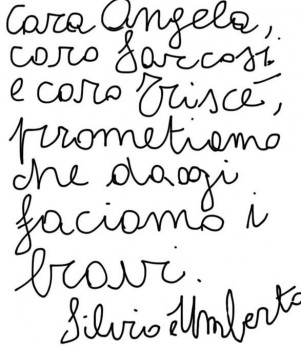 Cara Angela,
caro Sarcosi
e caro Triscé,
prometiamo
che daogi
faciamo i
bravi.
Silvio e Umberto